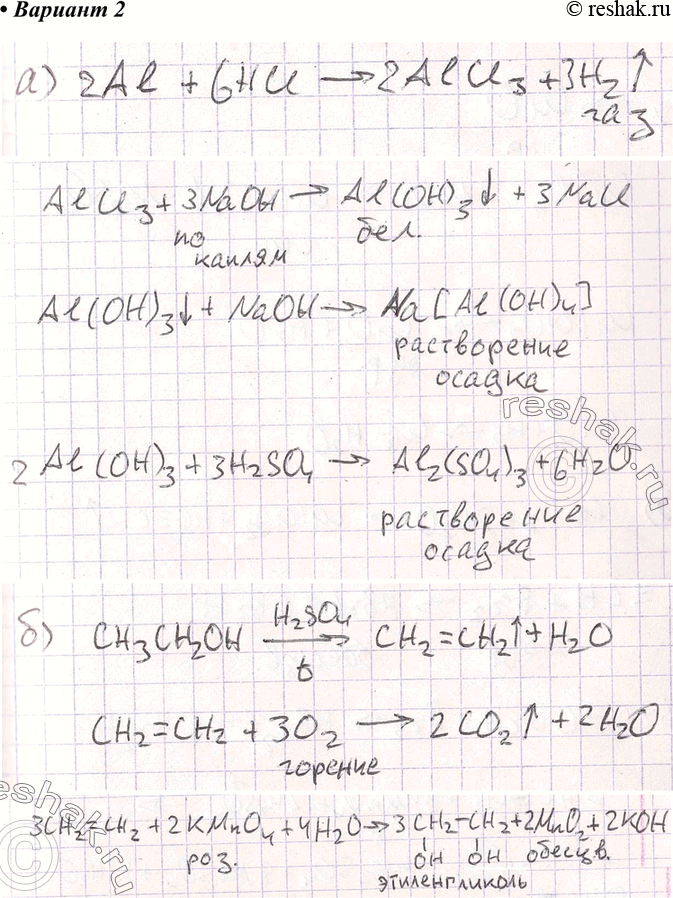 • Вариант 2
© reshak.ru
а) 2Al + 6HCl → 2AlCl₃ + 3H₂↑
газ
AlCl₃ + 3NaOH → Al(OH)₃↓ + 3NaCl
по каплям
бел.
Al(OH)₃↓ + NaOH → Na[Al(OH)₄]
растворение
осадка
2Al(OH)₃ + 3H₂SO₄ → Al₂(SO₄)₃ + 6H₂O
растворение
осадка
б) CH₃CH₂OH → CH₂=CH₂↑ + H₂O
H₂SO₄
t
CH₂=CH₂ + 3O₂ → 2CO₂↑ + 2H₂O
горение
3CH₂=CH₂ + 2KMnO₄ + 4H₂O → 3CH₂-CH₂ + 2MnO₂ + 2KOH
роз.
OH OH
обесцв.
этиленгликоль
reshak.ru
reshak.ru